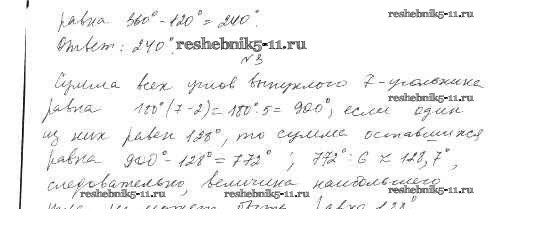 равна 360°-120°=240°.
reshebnik5-11.ru
Ответ: 240°. reshebnik5-11.ru
№3
Сумма всех углов выпуклого 7-угольника
reshebnik5-11.ru
равна 180°(7-2)=180°·5=900°, если один
из них равен 128°, то сумма оставшихся
reshebnik5-11.ru
равна 900°-128°=772°; 772°:6≈128,7°,
следовательно, величина наибольшего
reshebnik5-11.ru reshebnik5-11.ru
не может быть равна 128°